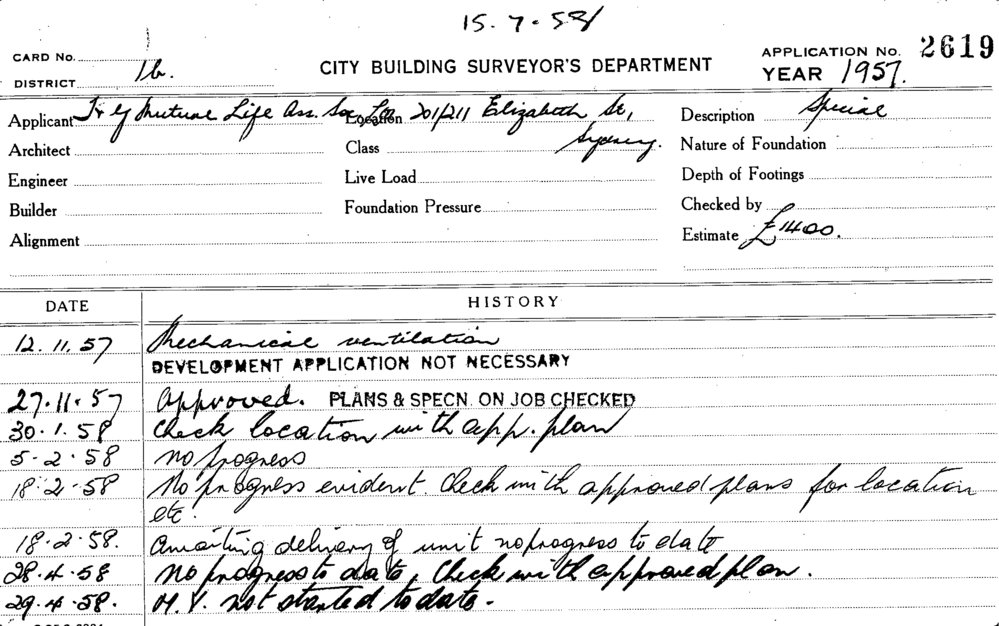 15.7.58
CARD No.
DISTRICT 1b.
CITY BUILDING SURVEYOR'S DEPARTMENT
APPLICATION No. 2619
YEAR 1957.
Applicant T & G Mutual Life Ass. Soc. Ltd Location 201/211 Elizabeth St, Description Special
Architect Class Sydney. Nature of Foundation
Engineer Live Load Depth of Footings
Builder Foundation Pressure Checked by
Alignment Estimate £1400.
DATE HISTORY
12.11.57 Mechanical ventilation
DEVELOPMENT APPLICATION NOT NECESSARY
27.11.57 Approved. PLANS & SPECN. ON JOB CHECKED
30.1.58 Check location with app. plan
5-2-58 No progress
18-2-58 No progress evident. Check with approved plans for location
etc.
18-2-58. Awaiting delivery of unit no progress to date
28.4.58 No progress to date, Check with approved plan.
29.4.58. M.V. not started to date.